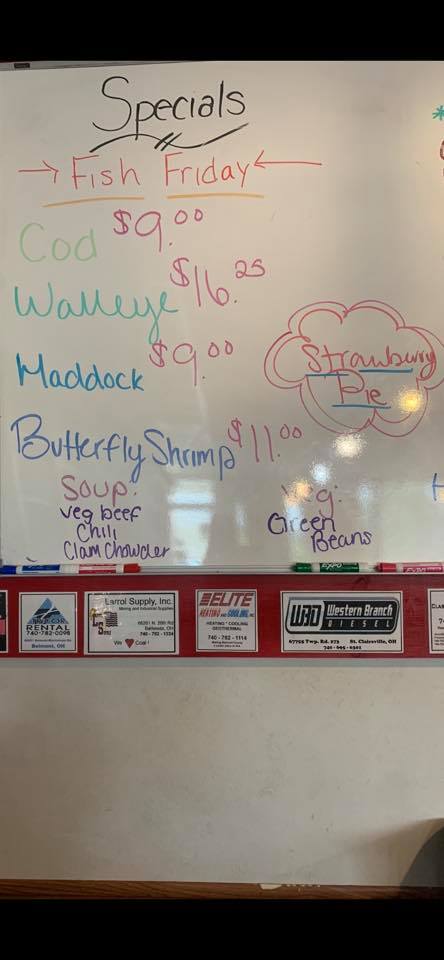 Specials
Fish Friday
Cod $9.00
Walleye $16.25
Haddock $9.00
Butterfly Shrimp $11.00
Strawbury
Pie
Soup:
veg beef
Chili
Clam Chowder
Veg:
Green
Beans
EXPO
EXPO
RENTAL
740-782-0098
Belmont, OH
Larrol Supply, Inc.
Mining and Industrial Supplies
66201 N. 26th Rd
Bethesda, OH
740 - 782 - 1334
We Coal!
ELITE
HEATING AND COOLING, INC
HEATING * COOLING
GEOTHERMAL
740 - 782 - 1114
WBD Western Branch
DIESEL
67755 Twp. Rd. 273 St. Clairsville, OH
740 - 695 - 6301